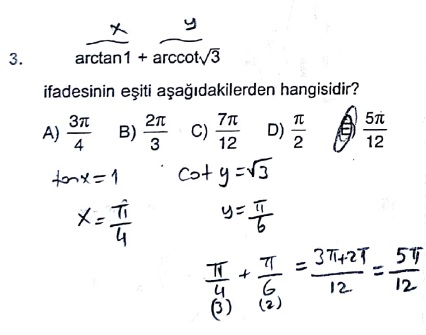 x y
3. arctan1 + arccot√3
ifadesinin eşiti aşağıdakilerden hangisidir?
A) 3π/4 B) 2π/3 C) 7π/12 D) π/2 E) 5π/12
tanx=1 cot y=√3
x=π/4 y=π/6
π/4 + π/6 = 3π+2π/12 = 5π/12
(3) (2)